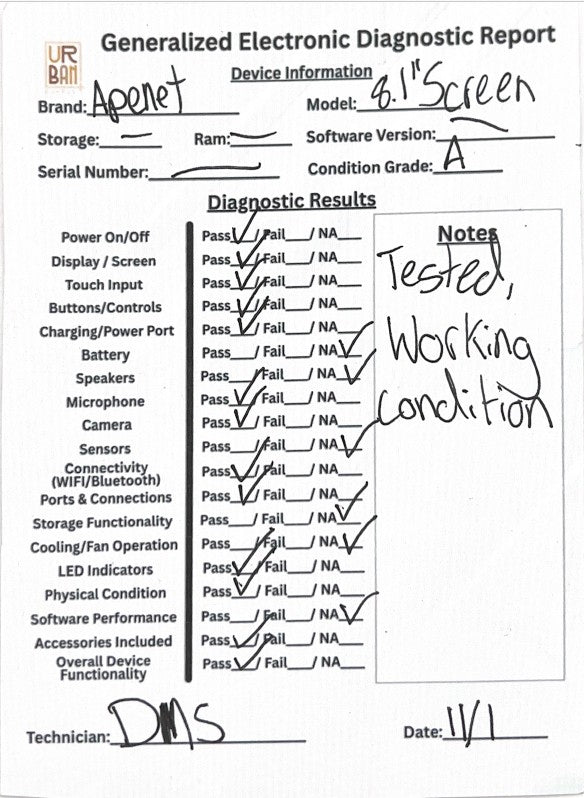 URBAN
Generalized Electronic Diagnostic Report
Device Information
Brand: Apenet Model: 8.1" Screen
Storage: — Ram: — Software Version: —
Serial Number: — Condition Grade: A
Diagnostic Results
Notes
Tested,
Working
condition
Power On/Off Pass ✓ / Fail___ / NA___
Display / Screen Pass ✓ / Fail___ / NA___
Touch Input Pass ✓ / Fail___ / NA___
Buttons/Controls Pass ✓ / Fail___ / NA___
Charging/Power Port Pass ✓ / Fail___ / NA___
Battery Pass___ / Fail___ / NA ✓
Speakers Pass___ / Fail___ / NA ✓
Microphone Pass ✓ / Fail___ / NA___
Camera Pass ✓ / Fail___ / NA___
Sensors Pass___ / Fail___ / NA ✓
Connectivity
(WIFI/Bluetooth) Pass ✓ / Fail___ / NA___
Ports & Connections Pass ✓ / Fail___ / NA___
Storage Functionality Pass___ / Fail___ / NA ✓
Cooling/Fan Operation Pass___ / Fail___ / NA ✓
LED Indicators Pass ✓ / Fail___ / NA___
Physical Condition Pass ✓ / Fail___ / NA___
Software Performance Pass___ / Fail___ / NA ✓
Accessories Included Pass ✓ / Fail___ / NA___
Overall Device
Functionality Pass ✓ / Fail___ / NA___
Technician: DMS Date: 11/1